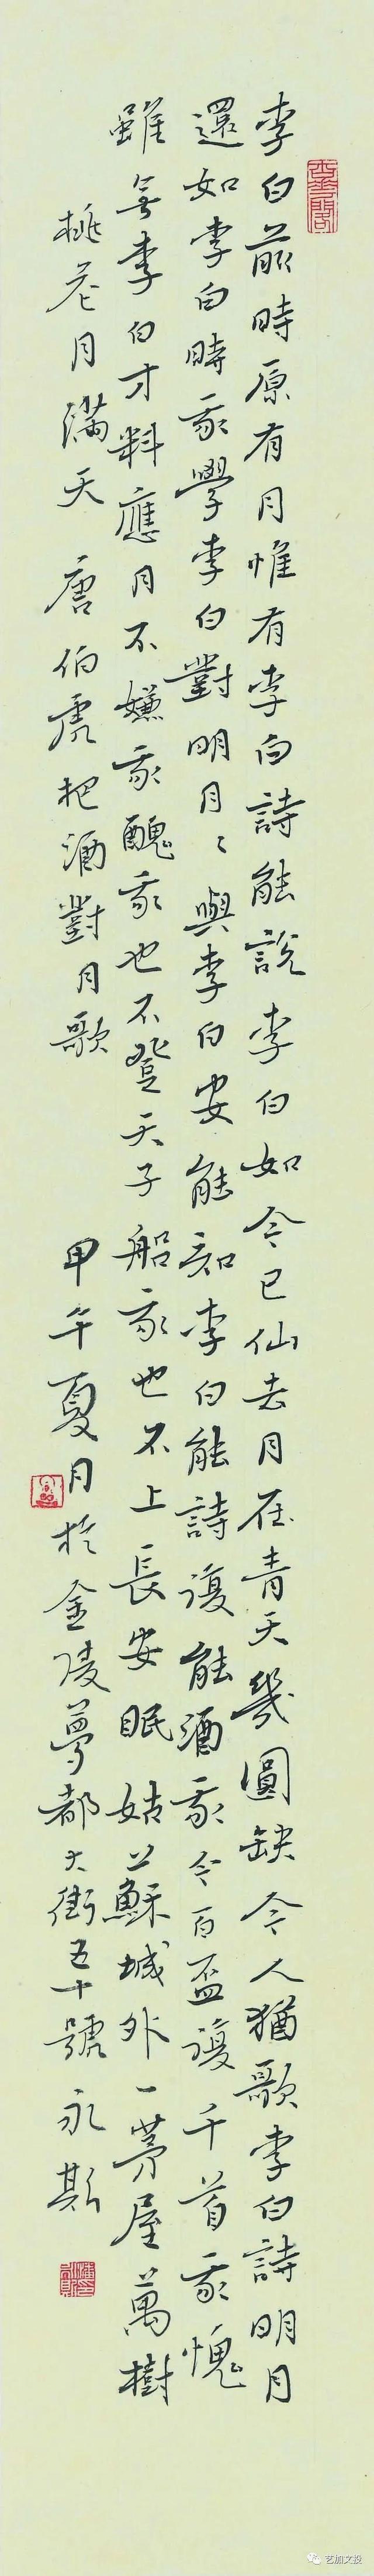 李白前時原有月惟有李白詩能說李白如今已仙去月在青天幾圓缺今人猶歌李白詩明月
還如李白時我學李白對明月〻與李白安能知李白能詩復能酒我今百盃復千首我愧
雖無李白才料應月不嫌我醜我也不登天子船我也不上長安眠姑蘇城外一茅屋萬樹
桃花月滿天 唐伯虎把酒對月歌 甲午夏月於金陵夢都大街五十號永斯
艺加文投